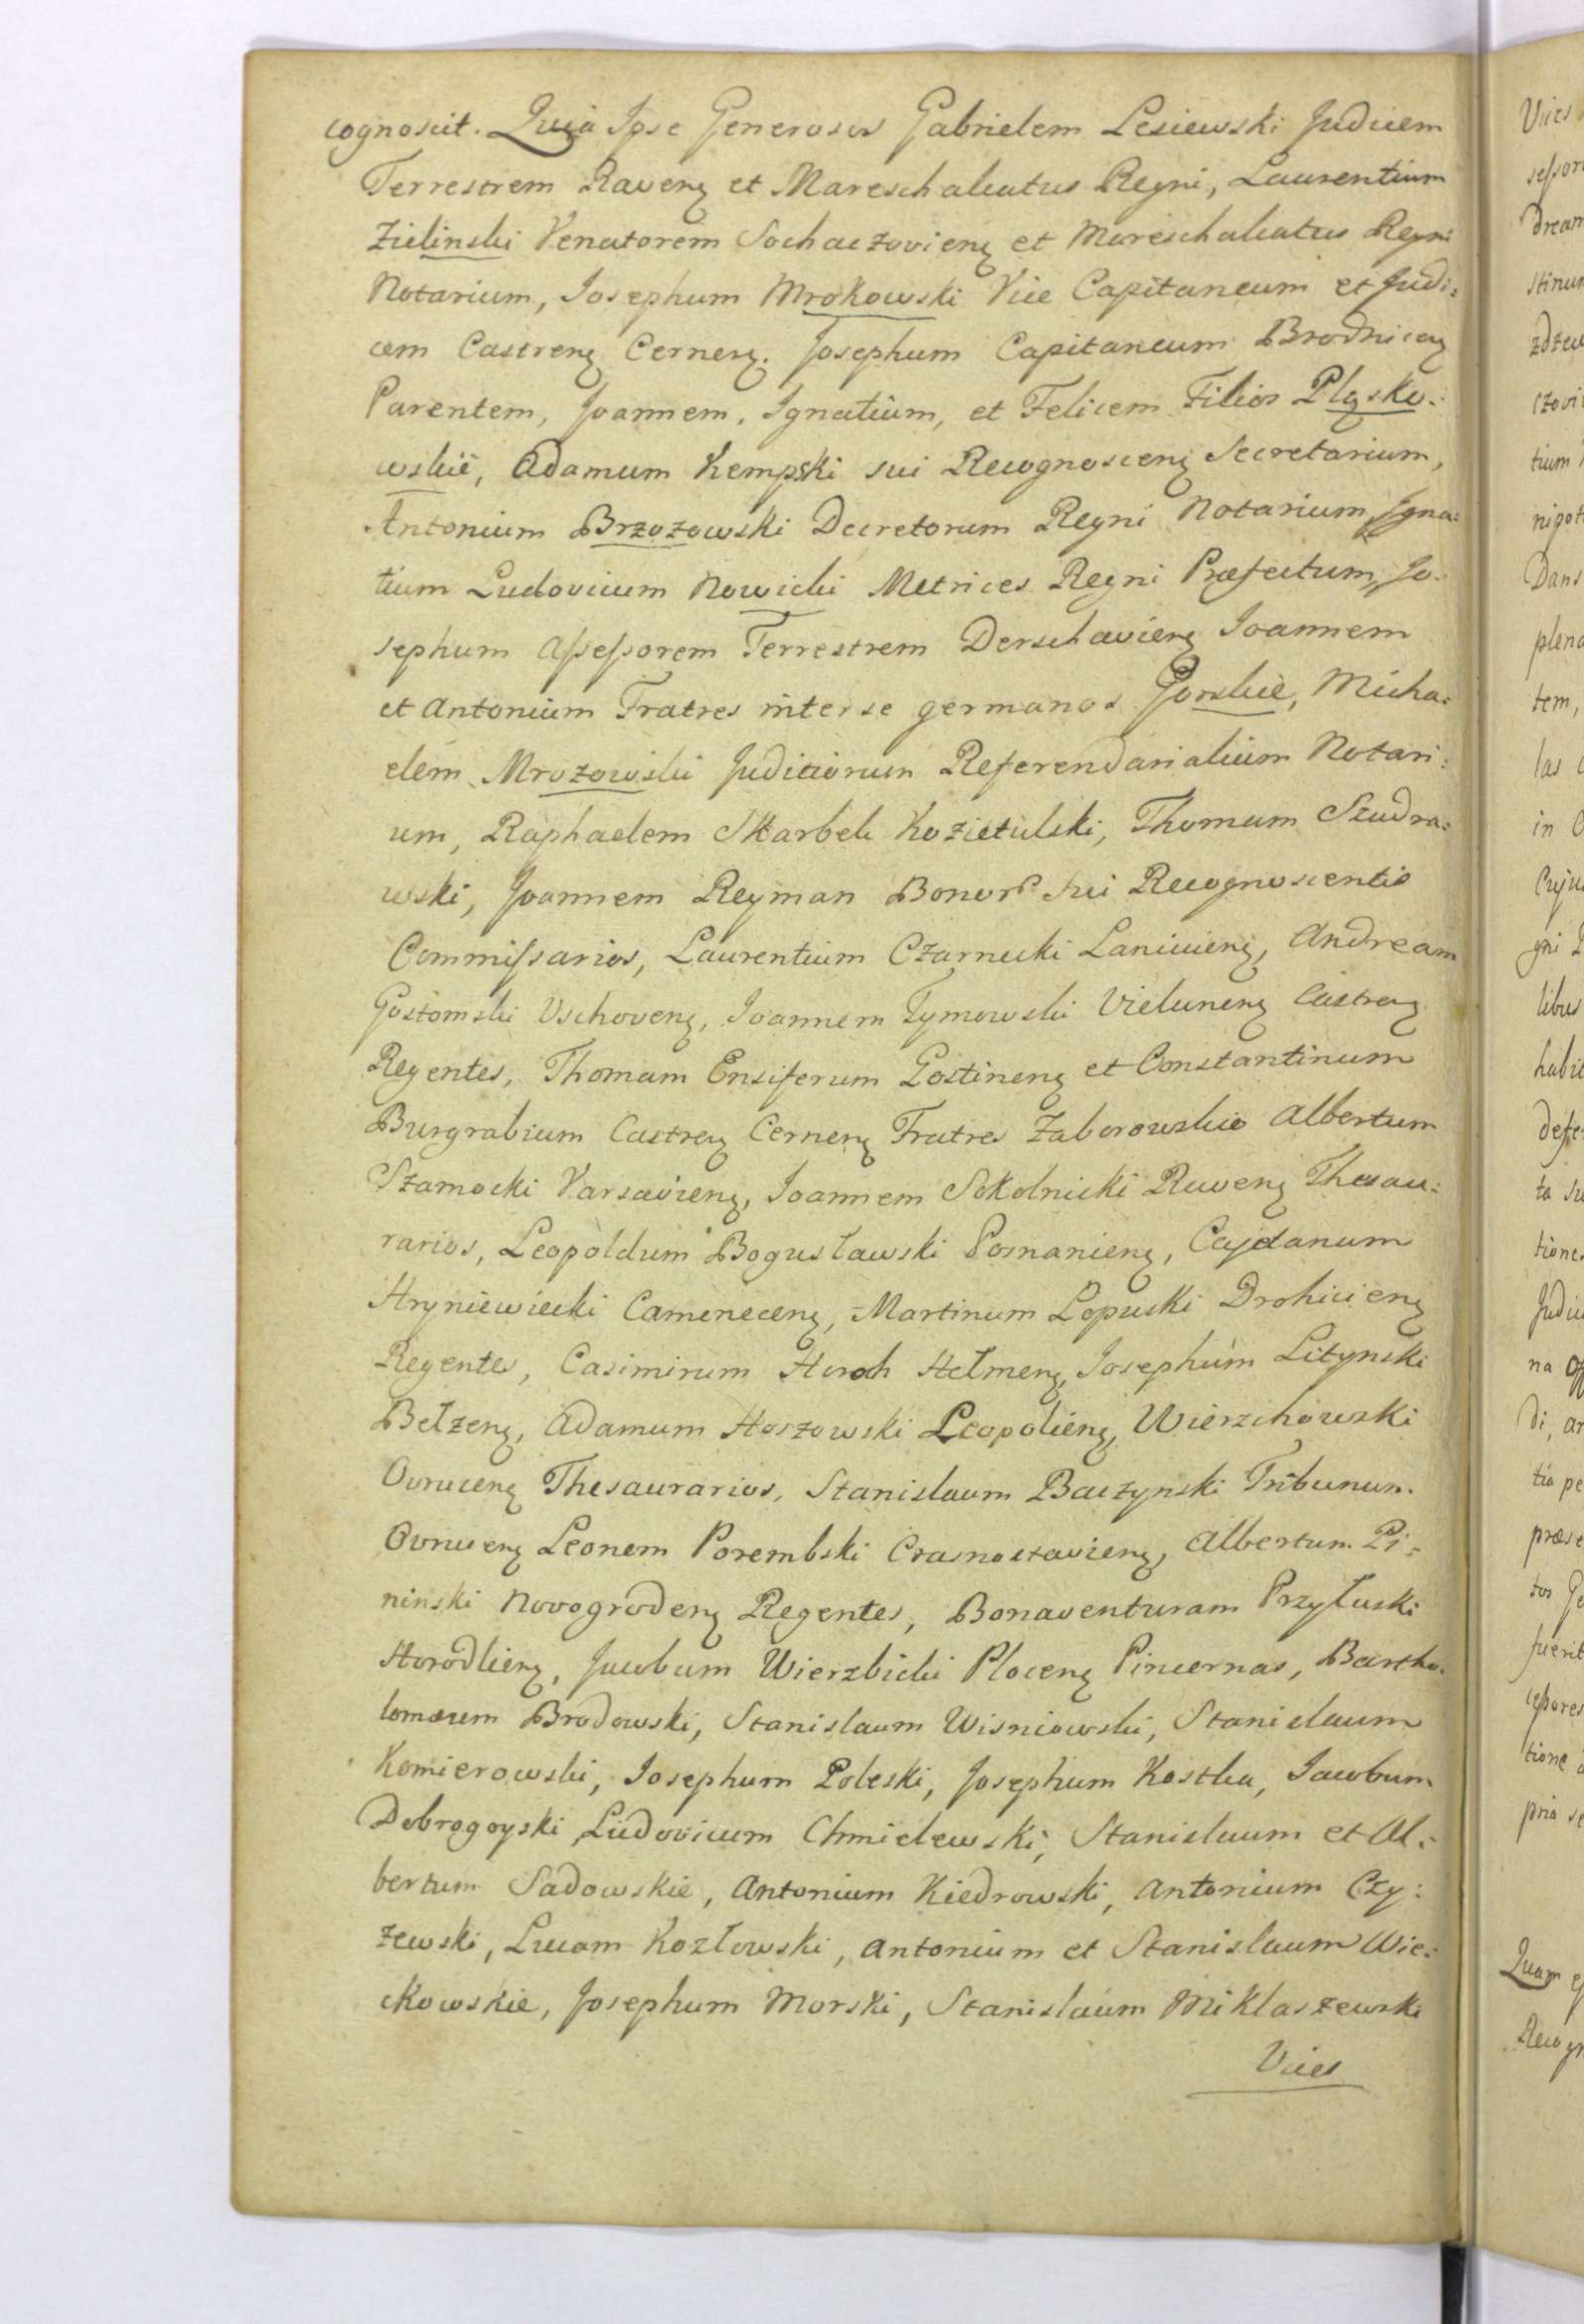 cognoscit. Quia Ipse Generosos Gabrielem Lesiewski Judicem
Terrestrem Ravenꝫ et Mareschalcatus Regni, Laurentium
Zielinski Venatorem Sochaczovienꝫ et Mareschalcatus Regni
Notarium, Josephum Mrokowski Vice Capitaneum et Judi:
cem Castrenꝫ Cernenꝫ. Josephum Capitaneum Brodnicenꝫ
Parentem, Joannem, Ignatium, et Felicem Filios Pląsko:
wskie, Adamum Kempski sui Recognoscenꝫ Secretarium,
Antonium Brzozowski Decretorum Regni Notarium, Igna:
tium Ludovicum Nowicki Metrices Regni Præfectum, Jo:
sephum Assessorem Terrestrem Derschavienꝫ Joannem
et Antonium Fratres inter se germanos Gorskie, Micha:
elem Mrozowski Juditiorum Referendarialium Notari:
um, Raphaelem Skarbek Kozietulski, Thomam Szudra:
wski, Joannem Reyman Bonor sui Recognoscentis
Commissarios, Laurentium Czarnecki Lanicienꝫ, Andream
Gostomski Vschovenꝫ, Joannem Tymowski Vielunenꝫ Castrenꝫ
Regentes, Thomam Ensiferum Gostinenꝫ et Constantinum
Burgrabium Castrenꝫ Cernenꝫ Fratres Zaborowskie Albertum
Szamocki Varsavienꝫ, Joannem Sokolnicki Ravenꝫ Thesau:
rarios, Leopoldum Bogusławski Posnanienꝫ, Cajetanum
Hryniewiecki Camenecenꝫ, Martinum Lopuski Drohicienꝫ
Regentes, Casimirum Horoch Hełmenꝫ, Josephum Litynski
Bełzenꝫ, Adamum Hoszowski Leopolienꝫ, Wierzchowski
Ovrucenꝫ Thesaurarios, Stanislaum Baczynski Tribunum
Ovrucenꝫ Leonem Porembski Crasnostavienꝫ, Albertum Pi:
ninski Novogrodenꝫ Regentes, Bonaventuram Przyłuski
Horodlienꝫ, Jacobum Wierzbicki Plocenꝫ Pincernas, Bartho:
lomæum Brodowski, Stanislaum Wisniowski, Stanislaum
Komierowski, Josephum Poleski, Josephum Kostka, Jacobum
Dobrogoyski, Ludovicum Chmielewski, Stanislaum et Al:
bertum Sadowskie, Antonium Kiedrowski, Antonium Czy:
zewski, Lucam Kozłowski, Antonium et Stanislaum Wie:
ckowskie, Josephum Morski, Stanislaum Miklaszewski
Vices